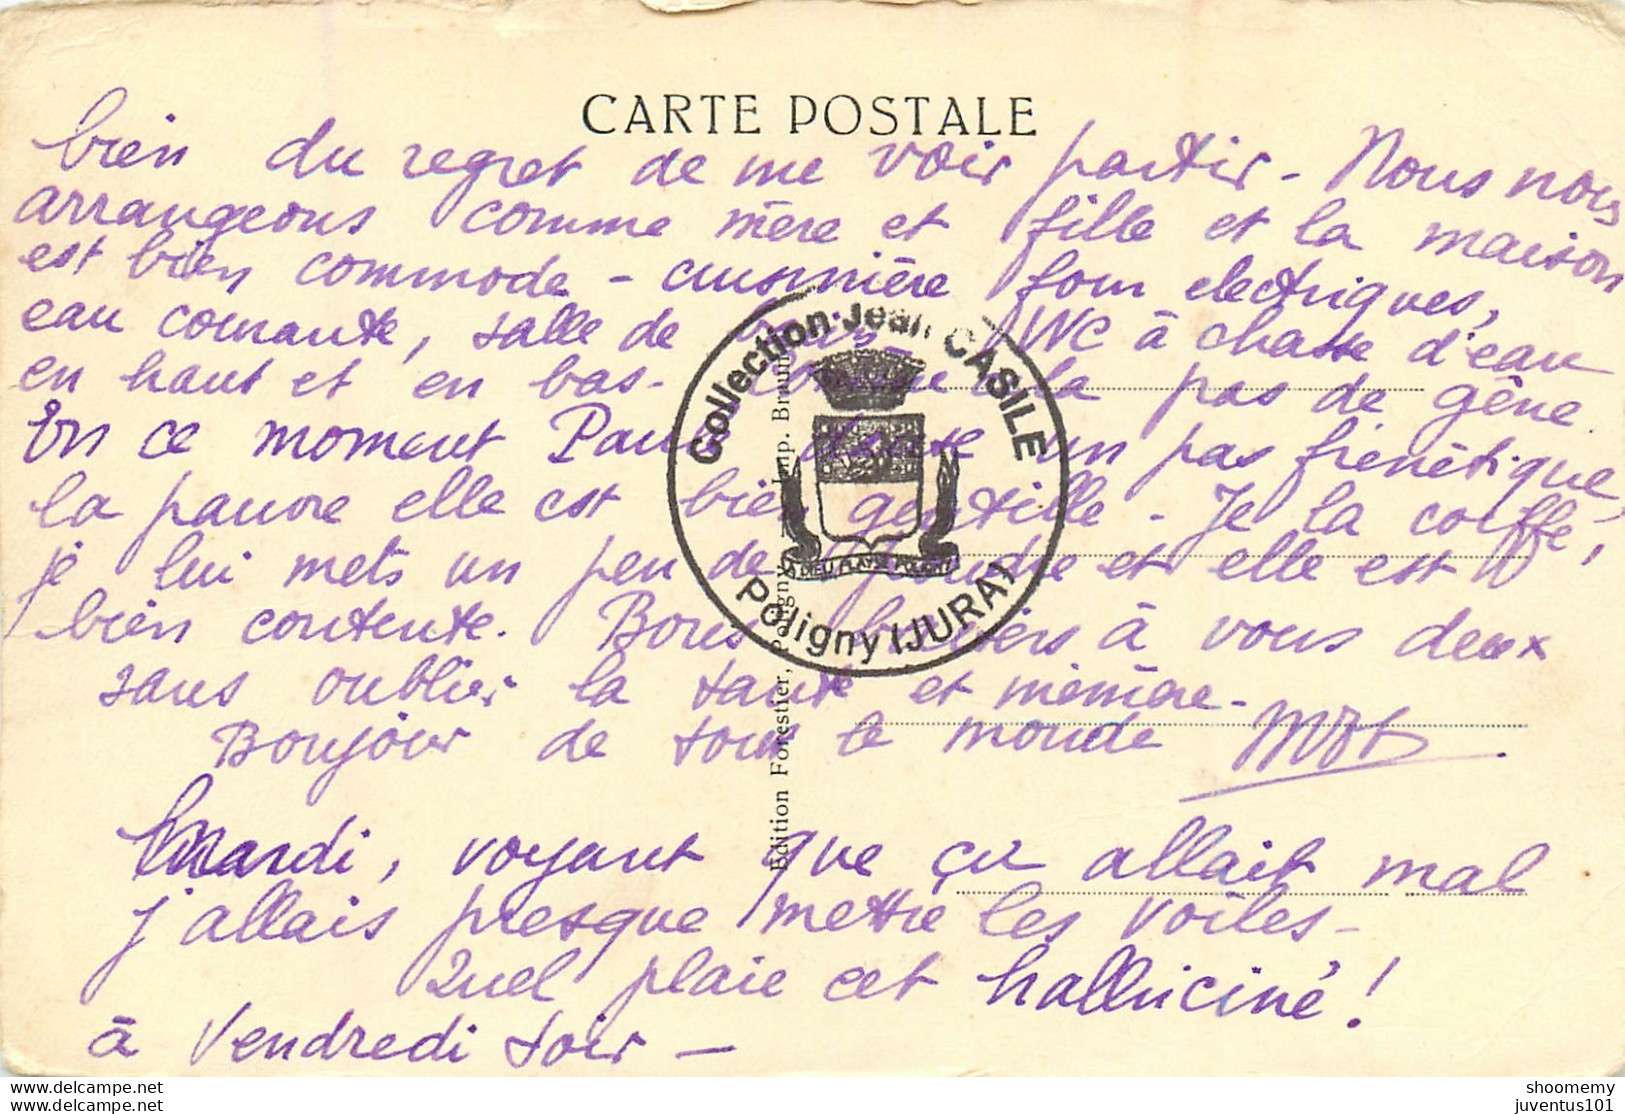 CARTE POSTALE
bien du regret de me voir partir - Nous nous
arrangeons comme mère et fille et la maison
est bien commode - cuisinière four electriques,
eau courante, salle de bains WC à chasse d'eau
en haut et en bas - la pas de gêne
En ce moment un pas frénétique,
la pauvre elle est bien gentille - Je la coiffe,
je lui mets un peu de poudre et elle est
bien contente. Bons baisers à vous deux
sans oublier la tante et mémère -
Bonjour de tout le monde
Mardi, voyant que ça allait mal
j'allais presque mettre les voiles -
Quel plaie cet halluciné !
à Vendredi soir -
Collection Jean CASILE
Poligny (JURA)
Edition Forestier, Poligny Imp.
delcampe.net
delcampe.net
shoomemy
juventus101